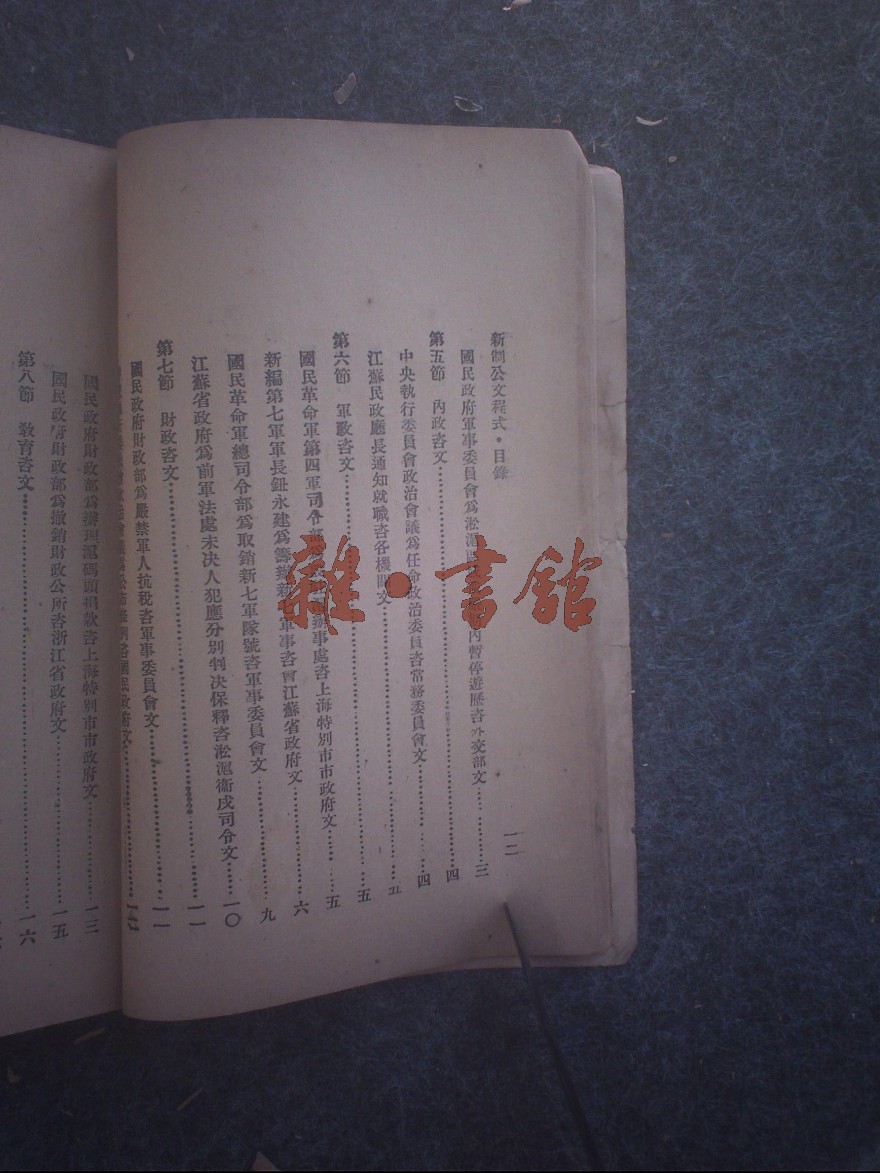 新制公文程式・目錄
一二
國民政府軍事委員會爲淞滬 內暫停遊歷咨外交部文 三
第五節 內政咨文 四
中央執行委員會政治會議爲任命政治委員咨常務委員會文 四
江蘇民政廳長通知就職咨各機關文 五
第六節 軍政咨文 五
國民革命軍第四軍司令部 辦事處咨上海特別市市政府文 六
新編第七軍軍長鈕永建爲籌辦新七軍軍事咨會江蘇省政府文 九
國民革命軍總司令部爲取銷新七軍隊號咨軍事委員會文 一〇
江蘇省政府爲前軍法處未決人犯應分別判決保釋咨淞滬衞戍司令文 一一
第七節 財政咨文 一一
國民政府財政部爲嚴禁軍人抗稅咨軍事委員會文
咨國民政府文
國民政府財政部爲辦理滬碼頭捐款咨上海特別市市政府文 一三
國民政府財政部爲撤銷財政公所咨浙江省政府文 一五
第八節 敎育咨文 一六
雜・書館